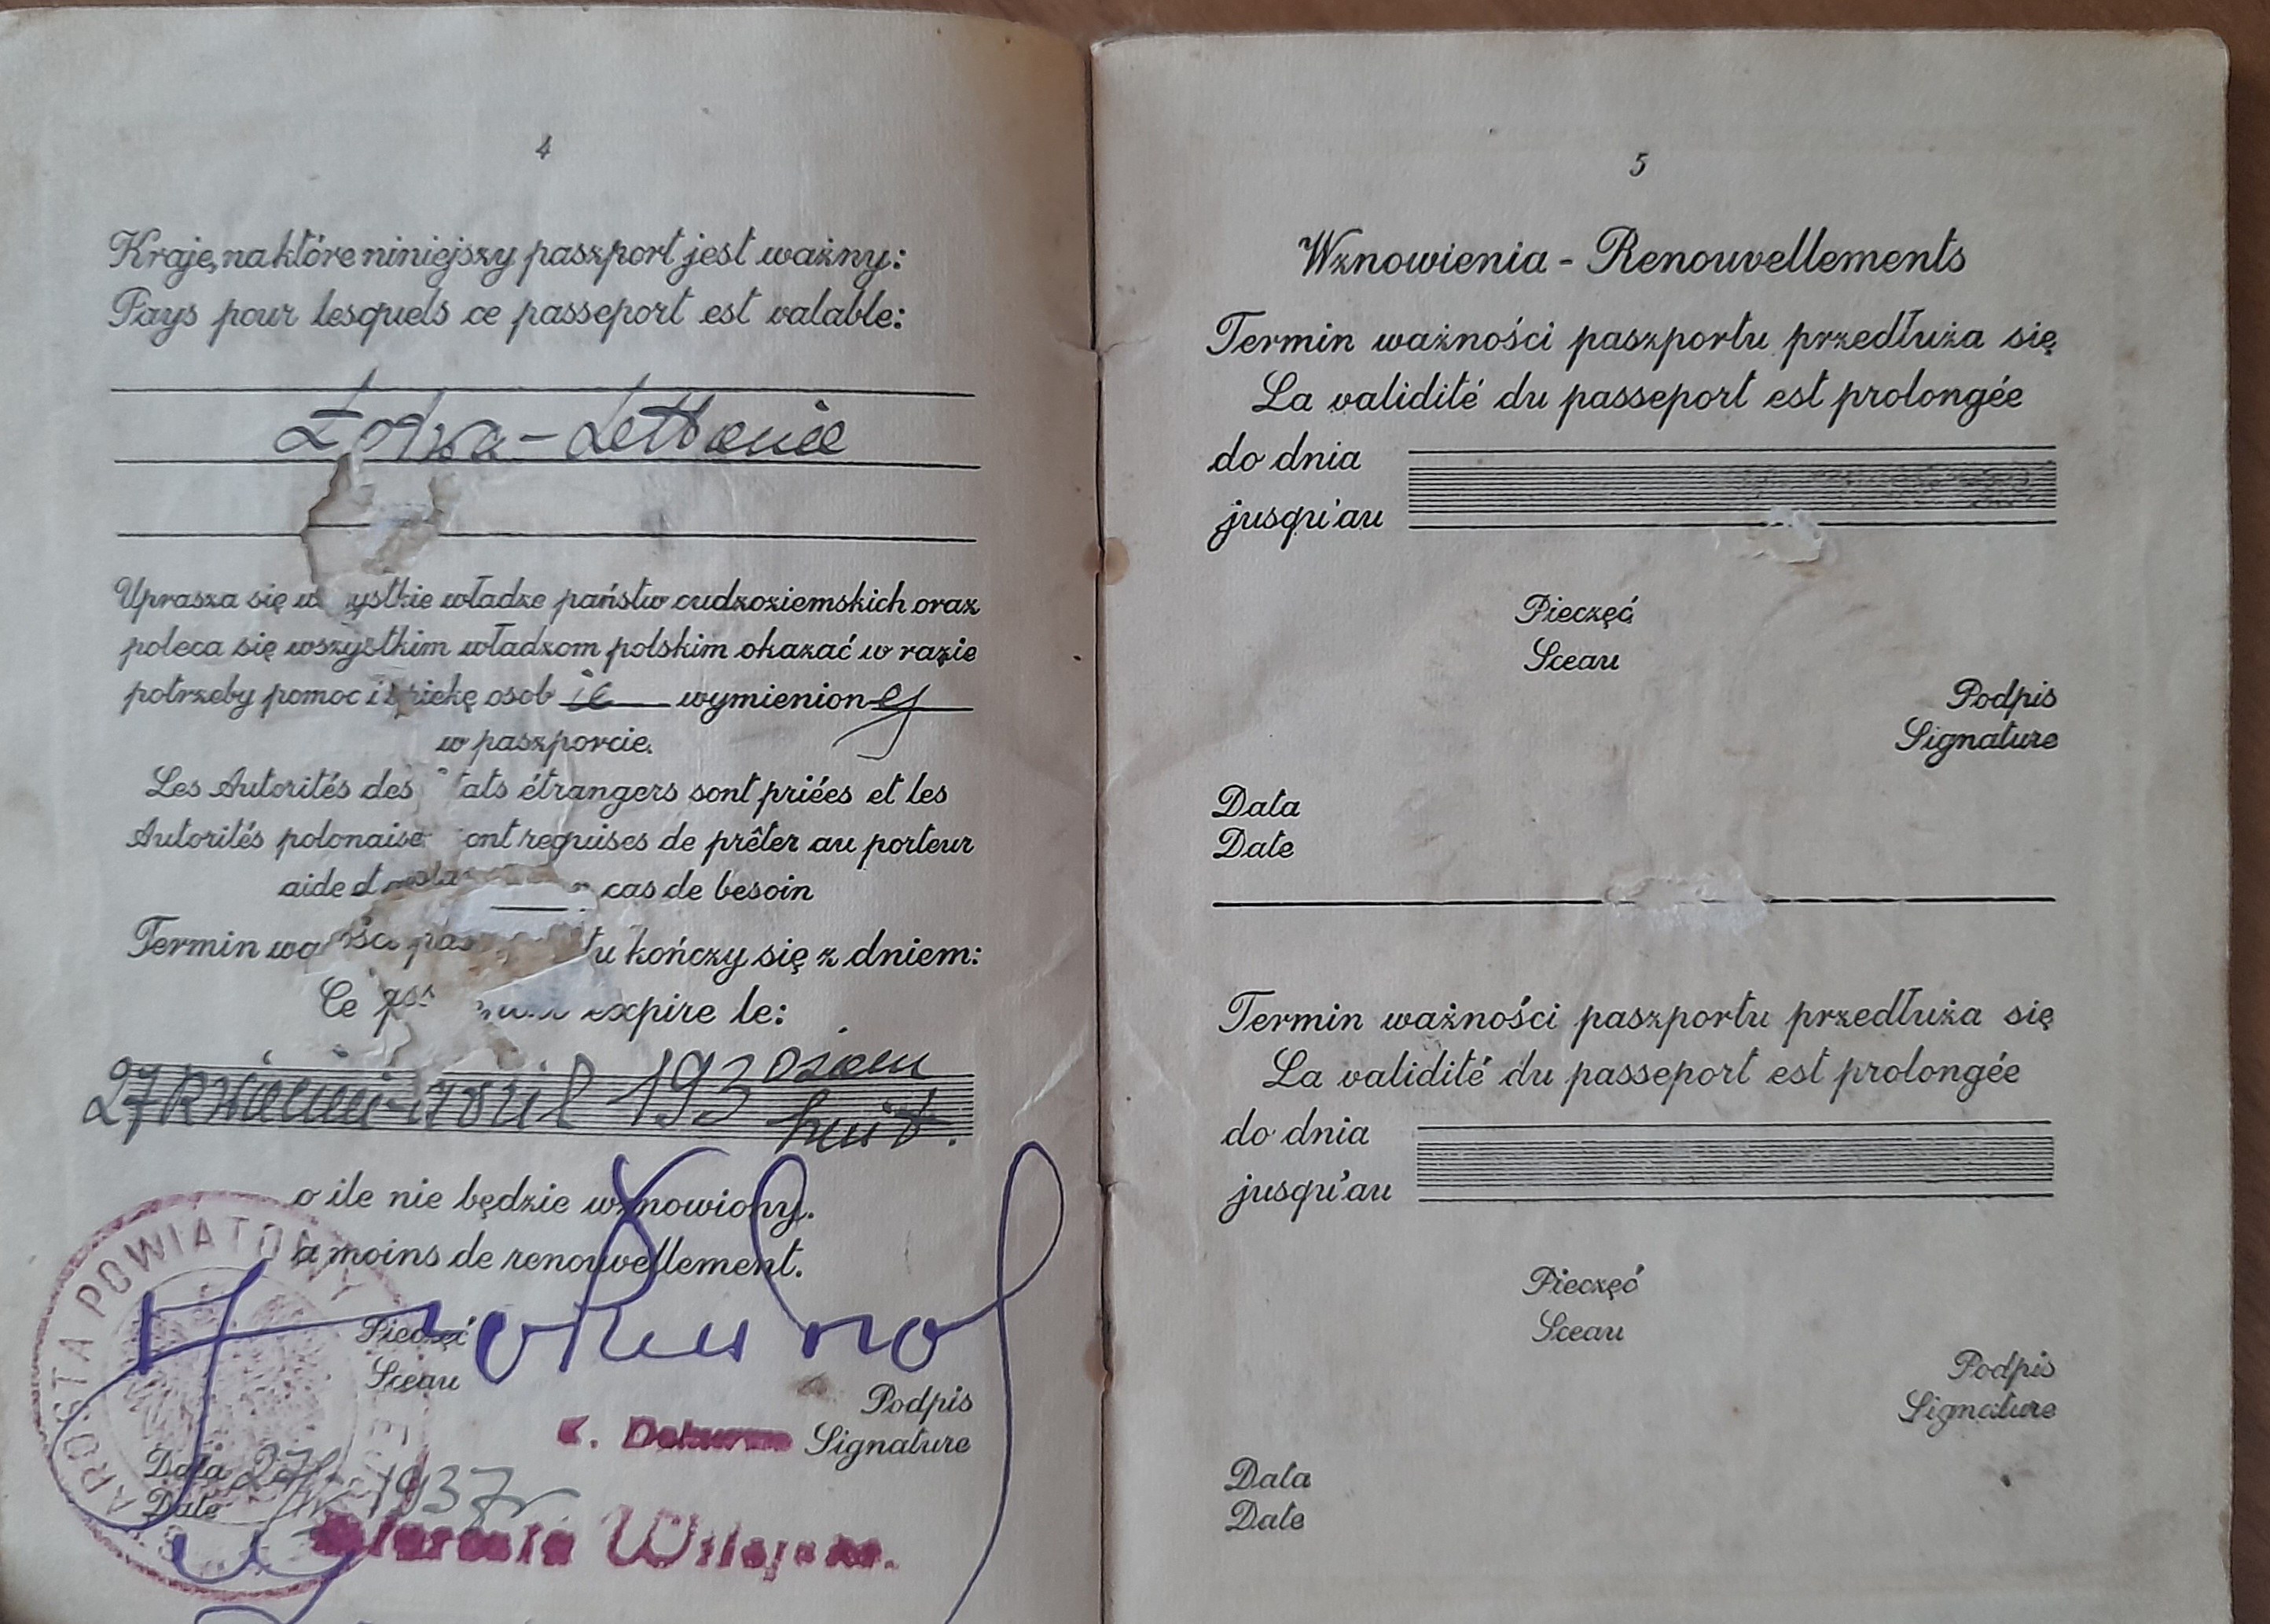 4
Kraje, na które niniejszy paszport jest ważny:
Pays pour lesquels ce passeport est valable:
Łotwa - Lettonie
Uprasza się w ystkie władze państw cudzoziemskich oraz
poleca się wszystkim władzom polskim okazać w razie
potrzeby pomoc i opiekę osob ie wymienionej
w paszporcie.
Les Autorités des tats étrangers sont priées et les
Autorités polonaises ont requises de prêter au porteur
aide cas de besoin
Termin kończy się z dniem:
Ce expire le:
27 kwietnia-avril 193 osiem
huit.
o ile nie będzie wznowiony.
a moins de renouvellement.
STAROSTA POWIATOWY
Pieczęć
Sceau
Podpis
Signature
Data 27 1937 r.
Date
5
Wznowienia - Renouvellements
Termin ważności paszportu przedłuża się
La validité du passeport est prolongée
do dnia
jusqu'au
Pieczęć
Sceau
Podpis
Signature
Data
Date
Termin ważności paszportu przedłuża się
La validité du passeport est prolongée
do dnia
jusqu'au
Pieczęć
Sceau
Podpis
Signature
Data
Date